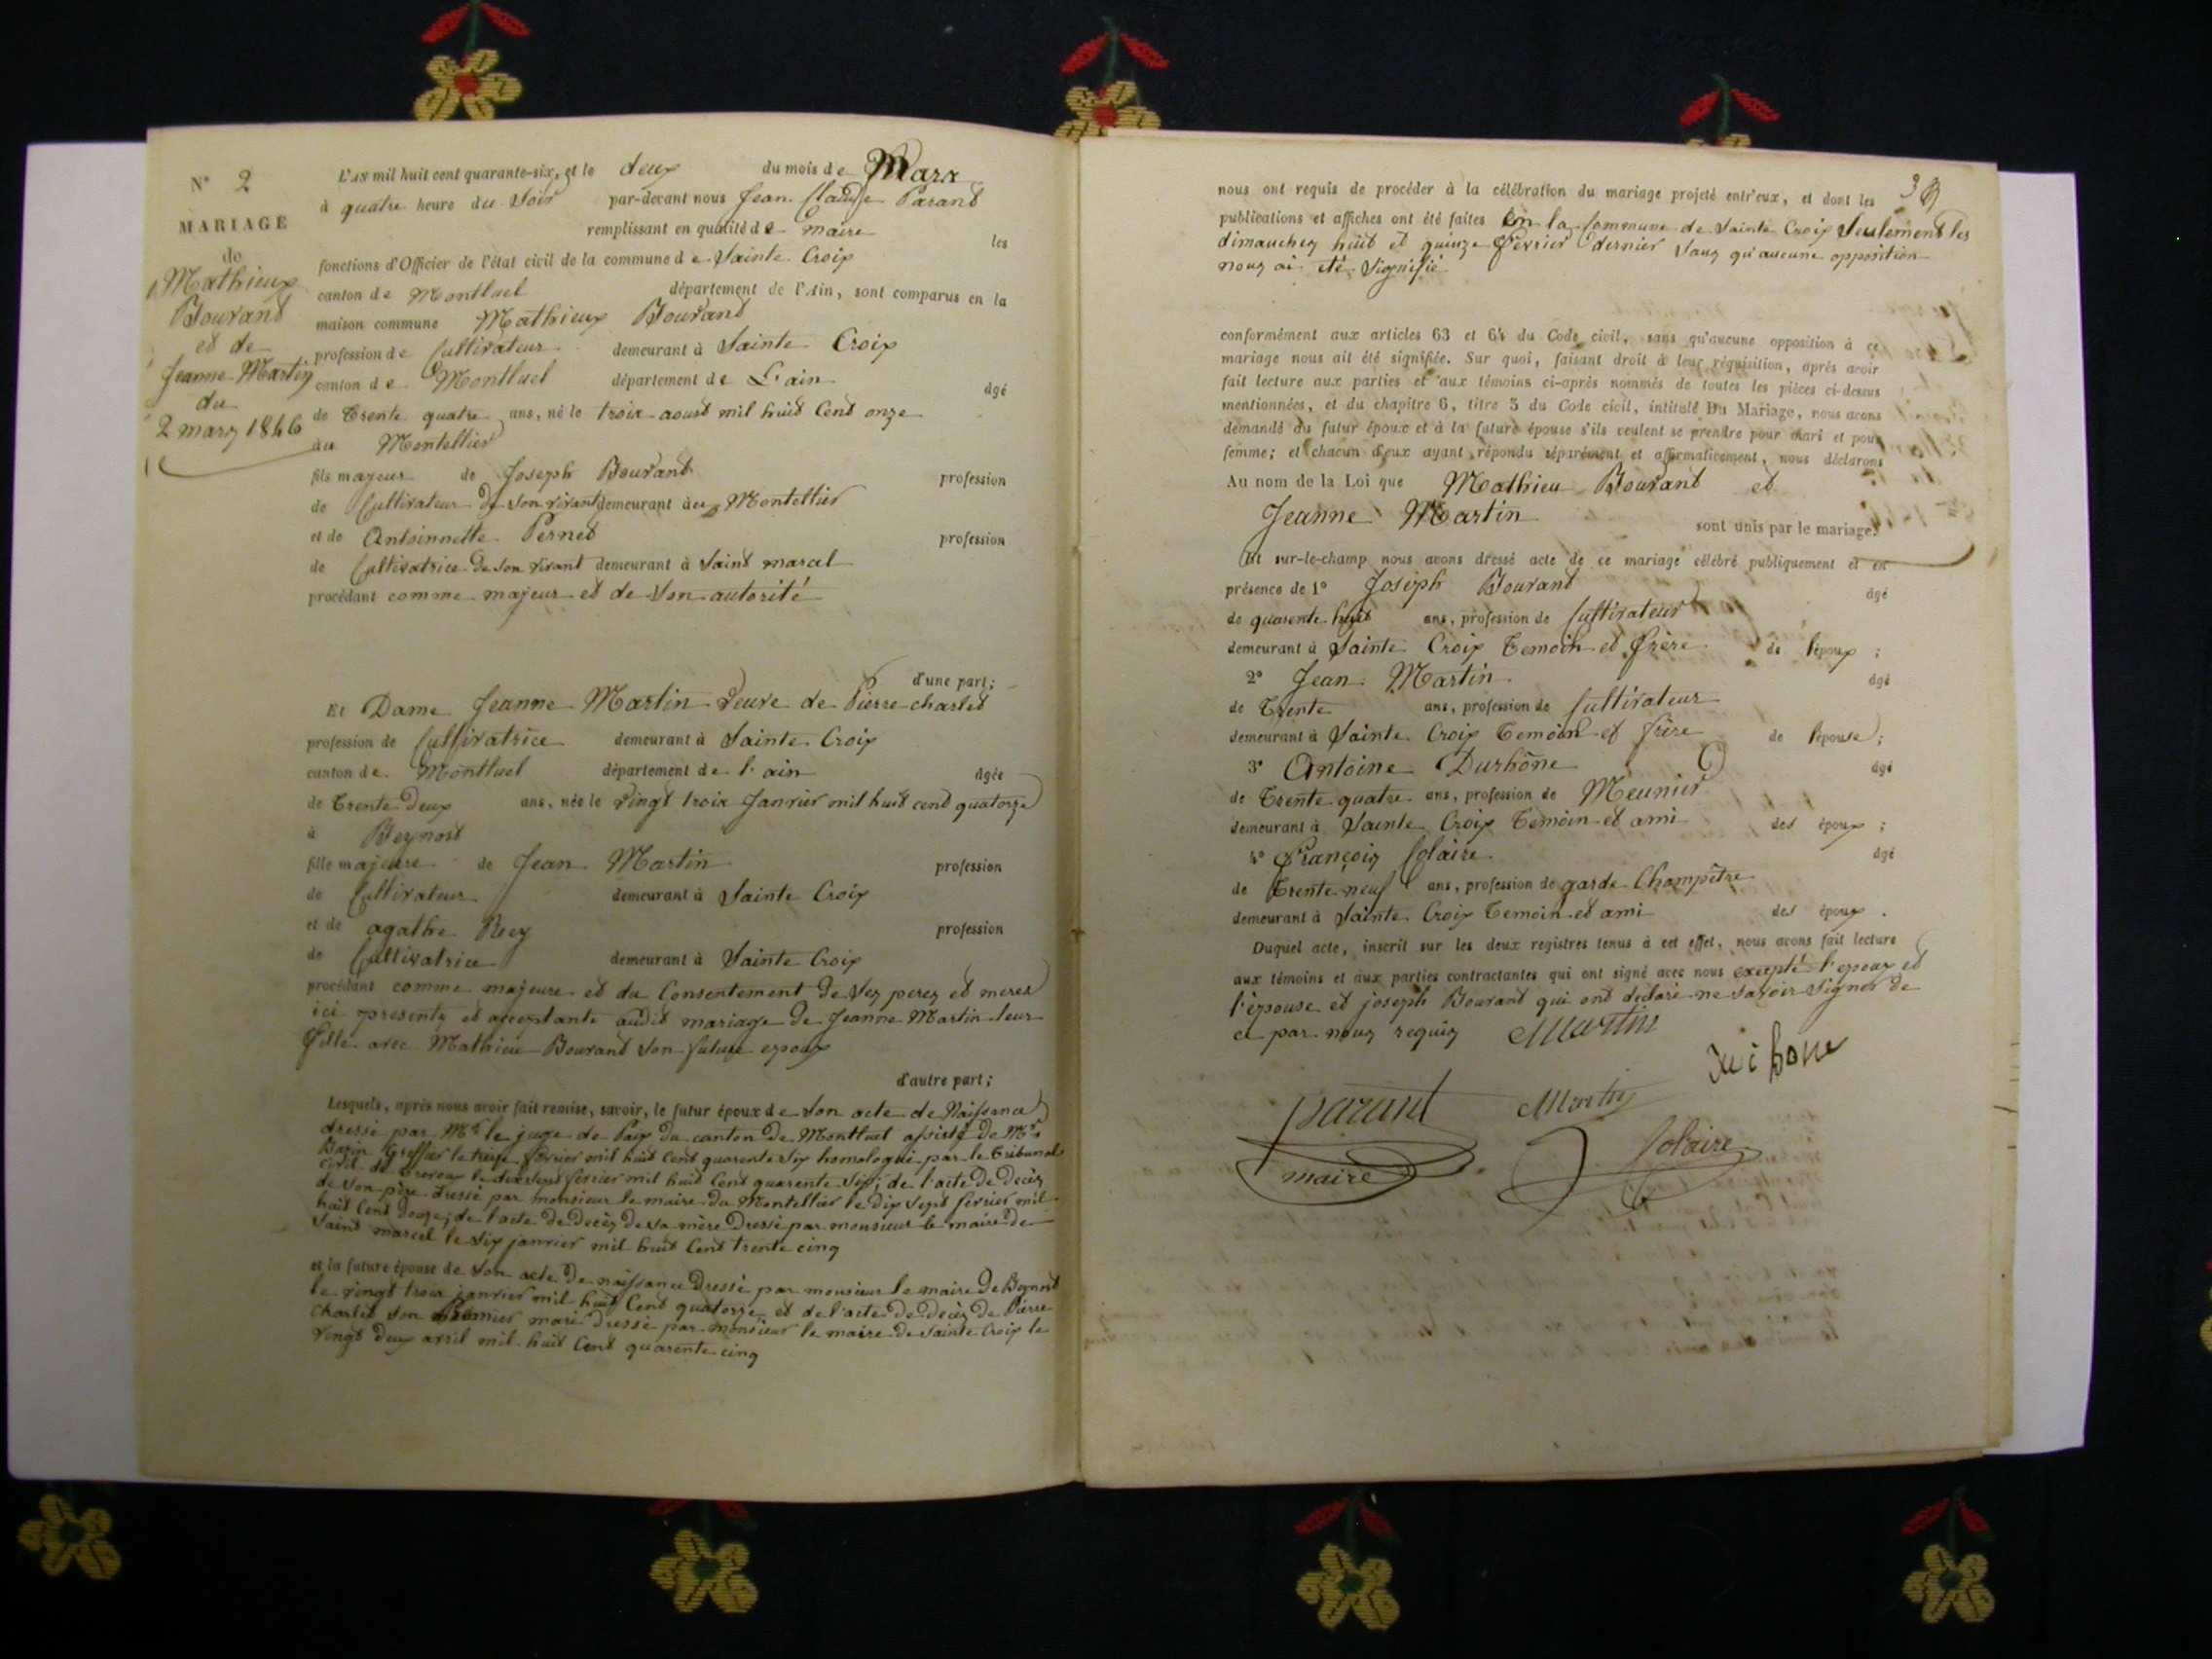 N° 2
MARIAGE
de
Mathieux
Bouvand
et de
Jeanne Martin
du
2 mars 1846
L'AN mil huit cent quarante-six, et le deux du mois de Mars
à quatre heure du Soir par-devant nous Jean Claude Parand
remplissant en qualité de maire les
fonctions d'Officier de l'état civil de la commune de Sainte Croix
canton de Montluel département de l'Ain, sont comparus en la
maison commune Mathieux Bouvand
profession de Cultivateur demeurant à Sainte Croix
canton de Montluel département de L'ain âgé
de Trente quatre ans, né le troix aoust mil huit Cent onze
au Montellier
fils majeur de Joseph Bouvand profession
de Cultivateur de Son vivant demeurant au Montellier
et de Antoinnette Pernet profession
de Cultivatrice de Son vivant demeurant à Saint marcel
procédant comme majeur et de Son autorité
d'une part;
Et Dame Jeanne Martin Veuve de Pierre charlet
profession de Cultivatrice demeurant à Sainte Croix
canton de Montluel département de l'ain âgée
de Trente Deux ans, née le vingt troix Janvier mil huit cent quatorze
à Beynost
fille majeure de Jean Martin profession
de Cultivateur demeurant à Sainte Croix
et de agathe Rey profession
de Cultivatrice demeurant à Sainte Croix
procédant comme majeure et du Consentement de Ses peres et meres
ici presents et acceptants audit mariage de Jeanne Martin leur
fille avec Mathieu Bouvand Son future epoux
d'autre part;
Lesquels, après nous avoir fait remise, savoir, le futur époux de Son acte de Naissance
dressé par Mr le juge de Paix du canton de Montluel assisté de Mr
Greffier le treize février mil huit Cent quarente Six homologué par le Tribunal
civil de Trevoux le dix Sept février mil huit Cent quarente Six; de l'acte de decès
de Son père dressé par monsieur le maire du Montellier le dix Sept février mil
huit Cent douze; de l'acte de decès de sa mère dressé par monsieur le maire de
Saint marcel le Six janvier mil huit Cent trente cinq
et la future épouse de Son acte de naissance dressé par monsieur le maire de Beynost
le vingt troix janvier mil huit Cent quatorze et de l'acte de decès de Pierre
Charlet Son premier mari dressé par monsieur le maire de Sainte Croix le
vingt deux avril mil huit Cent quarente cinq
3
nous ont requis de procéder à la célébration du mariage projeté entr'eux, et dont les
publications et affiches ont été faites En la Commune de Sainte Croix Seulement les
dimanches huit et quinze Février dernier Sans qu'aucune opposition
nous ai été Signifié
conformément aux articles 63 et 64 du Code civil, sans qu'aucune opposition à ce
mariage nous ait été signifiée. Sur quoi, faisant droit à leur réquisition, après avoir
fait lecture aux parties et aux témoins ci-après nommés de toutes les pièces ci-dessus
mentionnées, et du chapitre 6, titre 5 du Code civil, intitulé Du Mariage, nous avons
demandé au futur époux et à la future épouse s'ils veulent se prendre pour mari et pour
femme; et chacun d'eux ayant répondu séparément et affirmativement, nous déclarons
Au nom de la Loi que Mathieu Bouvand et
Jeanne Martin sont unis par le mariage.
Et sur-le-champ nous avons dressé acte de ce mariage célébré publiquement et en
présence de 1° Joseph Bouvand âgé
de quarente huit ans, profession de Cultivateur
demeurant à Sainte Croix Temoin et frère de l'époux ;
2° Jean Martin âgé
de Trente ans, profession de Cultivateur
demeurant à Sainte Croix Temoin et frère de l'épouse ;
3° Antoine Durhône âgé
de Trente quatre ans, profession de Meunier
demeurant à Sainte Croix Temoin et ami des époux ;
4° François Colaire âgé
de Trente neuf ans, profession de garde Champêtre
demeurant à Sainte Croix Temoin et ami des époux .
Duquel acte, inscrit sur les deux registres tenus à cet effet, nous avons fait lecture
aux témoins et aux parties contractantes qui ont signé avec nous excepté l'epoux et
l'épouse et joseph Bouvand qui ont declaré ne Savoir Signer de
ce par nous requis Martin
parant Martin
Colaire
maire